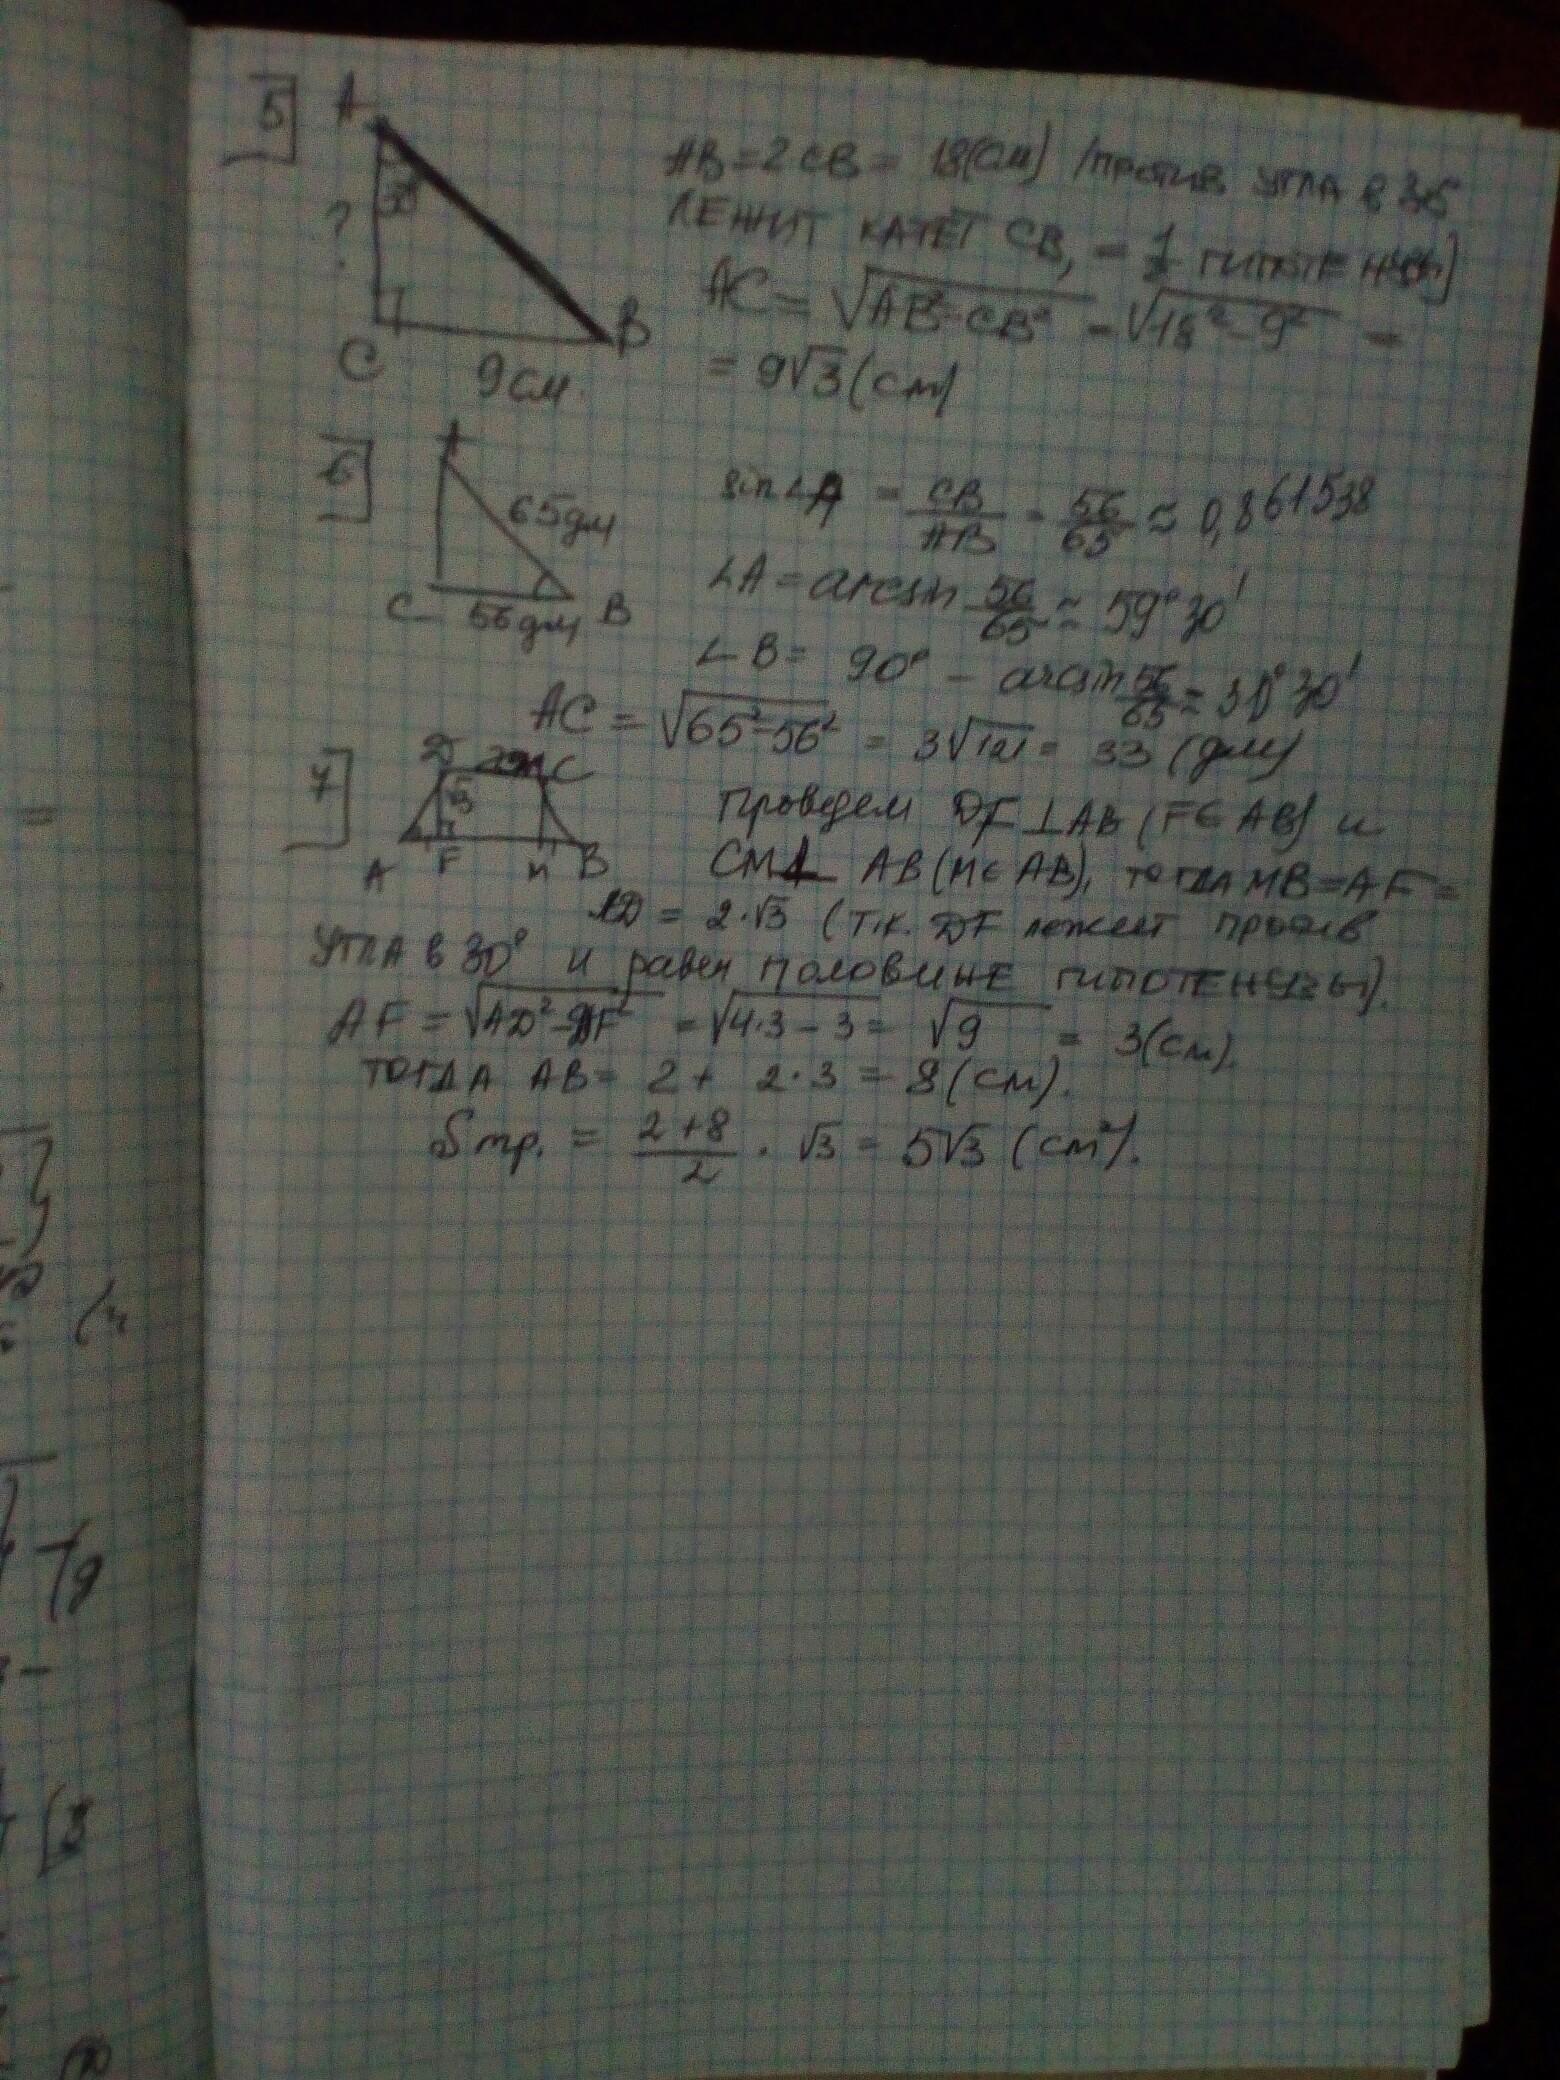 5
A
30°
?
C
9см.
B
AB = 2CB = 18(см) /против угла в 30°
лежит катет CB, = 1/2 гипотенузы]
AC = √AB²-CB² = √18²-9² =
= 9√3 (см)
6
A
65дм
C 56дм B
sin∠A = CB/AB = 56/65 ≈ 0,861538
∠A = arcsin 56/65 ≈ 59°30'
∠B = 90° - arcsin 56/65 ≈ 30°30'
AC = √65²-56² = 3√121 = 33 (дм)
7
D C
√3
A F M B
Проведем DF⊥AB (F∈AB) и
CM⊥ AB (M∈AB), тогда MB=AF=
AD = 2·√3 (т.к. DF лежит против
угла в 30° и равен половине гипотенузы).
AF = √AD²-DF² = √4·3-3 = √9 = 3(см).
тогда AB = 2 + 2·3 = 8 (см).
Sтр. = 2+8/2 · √3 = 5√3 (см²).
=